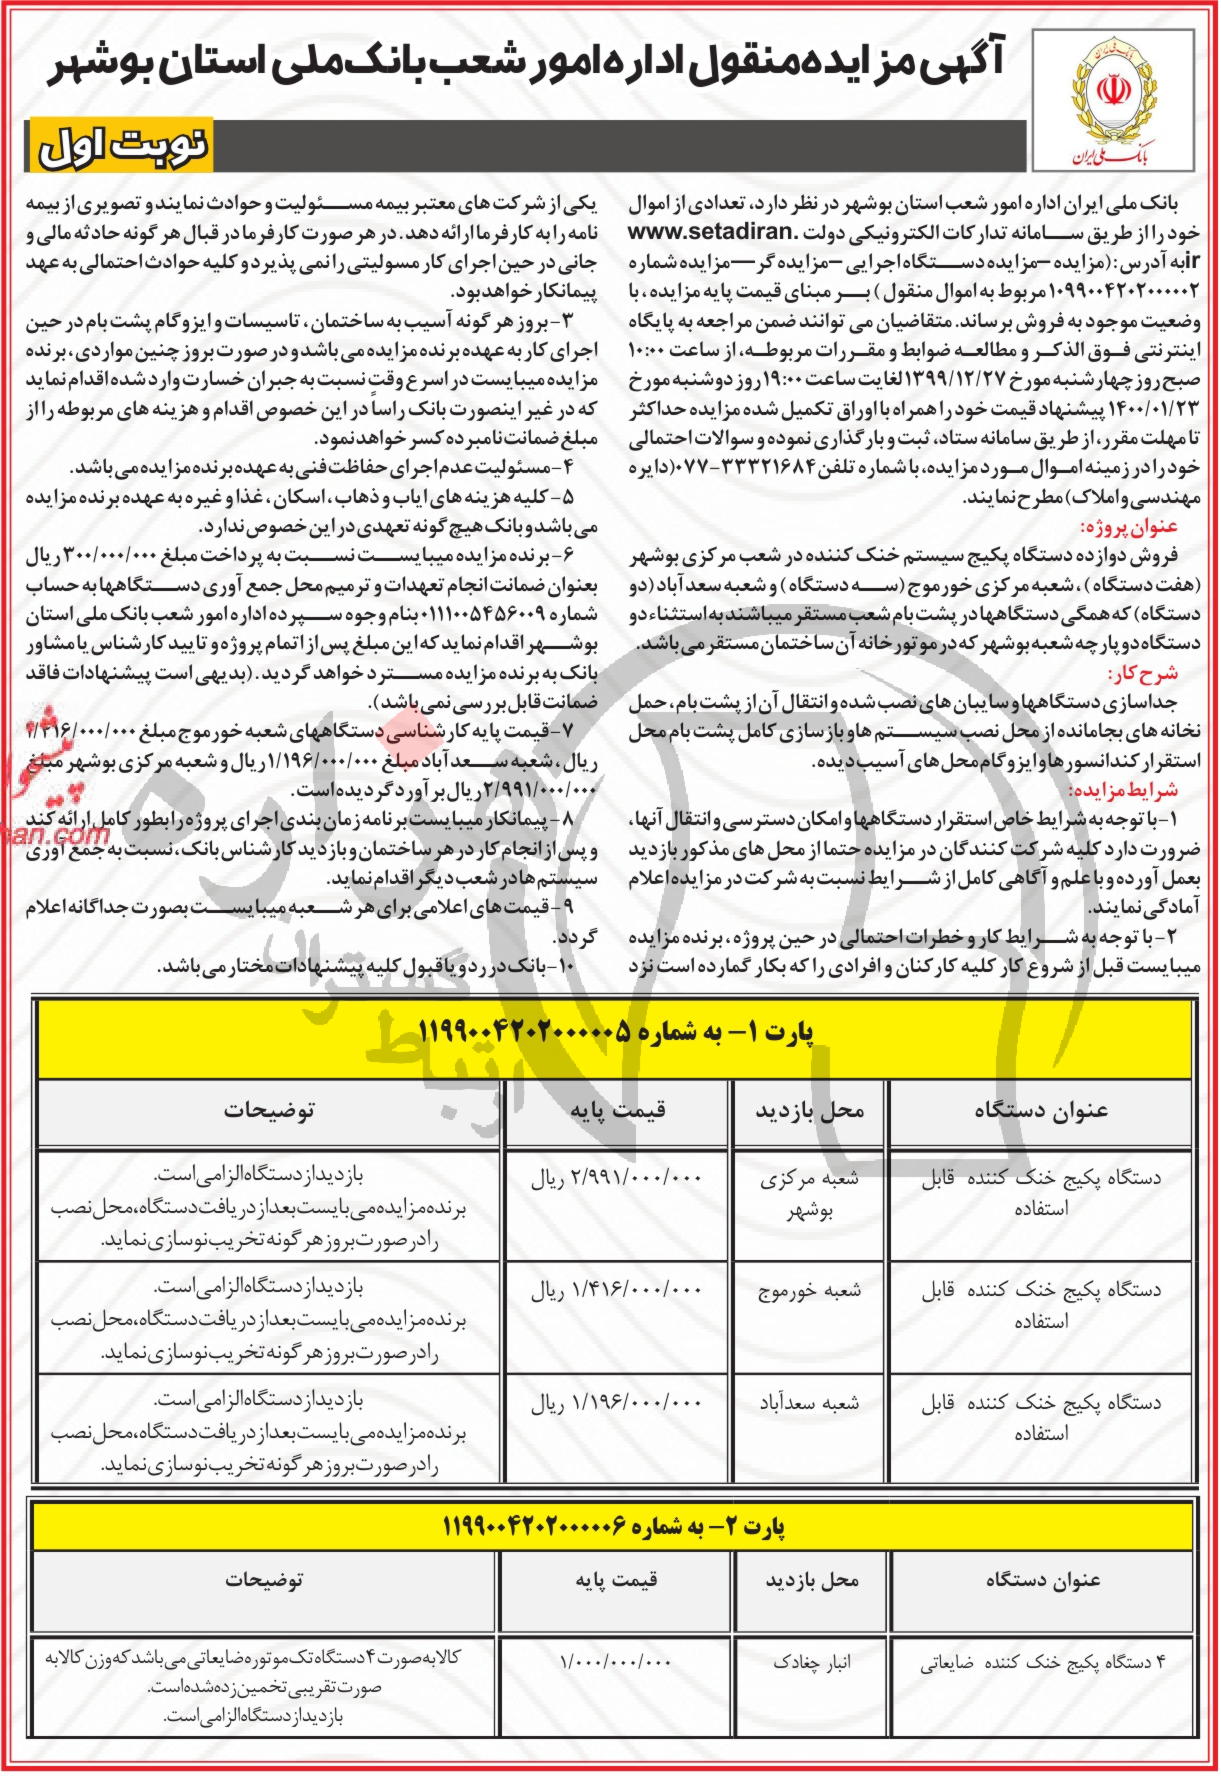 آگهی مزایده منقول اداره امور شعب بانک ملی استان بوشهر
بانک ملی ایران
نوبت اول
بانک ملی ایران اداره امور شعب استان بوشهر در نظر دارد، تعدادی از اموال
خود را از طریق سامانه تدارکات الکترونیکی دولت www.setadiran.
ir به آدرس: (مزایده – مزایده دستگاه اجرایی – مزایده گر – مزایده شماره
۱۰۹۹۰۰۴۲۰۲۰۰۰۰۰۲ مربوط به اموال منقول) بر مبنای قیمت پایه مزایده، با
وضعیت موجود به فروش برساند. متقاضیان می توانند ضمن مراجعه به پایگاه
اینترنتی فوق الذکر و مطالعه ضوابط و مقررات مربوطه، از ساعت ۱۰:۰۰
صبح روز چهارشنبه مورخ ۱۳۹۹/۱۲/۲۷ لغایت ساعت ۱۹:۰۰ روز دوشنبه مورخ
۱۴۰۰/۰۱/۲۳ پیشنهاد قیمت خود را همراه با اوراق تکمیل شده مزایده حداکثر
تا مهلت مقرر، از طریق سامانه ستاد، ثبت و بارگذاری نموده و سوالات احتمالی
خود را در زمینه اموال مورد مزایده، با شماره تلفن ۳۳۳۲۱۶۸۴-۰۷۷ (دایره
مهندسی و املاک) مطرح نمایند.
عنوان پروژه:
فروش دوازده دستگاه پکیج سیستم خنک کننده در شعب مرکزی بوشهر
(هفت دستگاه)، شعبه مرکزی خورموج (سه دستگاه) و شعبه سعدآباد (دو
دستگاه) که همگی دستگاهها در پشت بام شعب مستقر میباشند به استثناء دو
دستگاه دوپارچه شعبه بوشهر که در موتورخانه آن ساختمان مستقر می باشد.
شرح کار:
جداسازی دستگاهها و سایبان های نصب شده و انتقال آن از پشت بام، حمل
نخانه های بجامانده از محل نصب سیستم ها و بازسازی کامل پشت بام محل
استقرار کندانسورها و ایزوگام محل های آسیب دیده.
شرایط مزایده:
۱- با توجه به شرایط خاص استقرار دستگاهها و امکان دسترسی و انتقال آنها،
ضرورت دارد کلیه شرکت کنندگان در مزایده حتما از محل های مذکور بازدید
بعمل آورده و با علم و آگاهی کامل از شرایط نسبت به شرکت در مزایده اعلام
آمادگی نمایند.
۲- با توجه به شرایط کار و خطرات احتمالی در حین پروژه، برنده مزایده
میبایست قبل از شروع کار کلیه کارکنان و افرادی را که بکار گمارده است نزد
یکی از شرکت های معتبر بیمه مسئولیت و حوادث نمایند و تصویری از بیمه
نامه را به کارفرما ارائه دهد. در هر صورت کارفرما در قبال هر گونه حادثه مالی و
جانی در حین اجرای کار مسولیتی را نمی پذیرد و کلیه حوادث احتمالی به عهد
پیمانکار خواهد بود.
۳- بروز هر گونه آسیب به ساختمان، تاسیسات و ایزوگام پشت بام در حین
اجرای کار به عهده برنده مزایده می باشد و در صورت بروز چنین مواردی، برنده
مزایده میبایست در اسرع وقت نسبت به جبران خسارت وارد شده اقدام نماید
که در غیر اینصورت بانک راساً در این خصوص اقدام و هزینه های مربوطه را از
مبلغ ضمانت نامبرده کسر خواهد نمود.
۴- مسئولیت عدم اجرای حفاظت فنی به عهده برنده مزایده می باشد.
۵- کلیه هزینه های ایاب و ذهاب، اسکان، غذا و غیره به عهده برنده مزایده
می باشد و بانک هیچ گونه تعهدی در این خصوص ندارد.
۶- برنده مزایده میبایست نسبت به پرداخت مبلغ ۳۰۰/۰۰۰/۰۰۰ ریال
بعنوان ضمانت انجام تعهدات و ترمیم محل جمع آوری دستگاهها به حساب
شماره ۰۱۱۱۰۰۵۴۵۶۰۰۹ بنام وجوه سپرده اداره امور شعب بانک ملی استان
بوشهر اقدام نماید که این مبلغ پس از اتمام پروژه و تایید کارشناس یا مشاور
بانک به برنده مزایده مسترد خواهد گردید. (بدیهی است پیشنهادات فاقد
ضمانت قابل بررسی نمی باشد).
۷- قیمت پایه کارشناسی دستگاههای شعبه خورموج مبلغ ۱/۴۱۶/۰۰۰/۰۰۰
ریال، شعبه سعدآباد مبلغ ۱/۱۹۶/۰۰۰/۰۰۰ ریال و شعبه مرکزی بوشهر مبلغ
۲/۹۹۱/۰۰۰/۰۰۰ ریال برآورد گردیده است.
۸- پیمانکار میبایست برنامه زمان بندی اجرای پروژه را بطور کامل ارائه کند
و پس از انجام کار در هر ساختمان و بازدید کارشناس بانک، نسبت به جمع آوری
سیستم ها در شعب دیگر اقدام نماید.
۹- قیمت های اعلامی برای هر شعبه میبایست بصورت جداگانه اعلام
گردد.
۱۰- بانک در رد و یا قبول کلیه پیشنهادات مختار می باشد.
هزاره
ارتباط گستران
han.com
پارت ۱- به شماره ۱۱۹۹۰۰۴۲۰۲۰۰۰۰۰۵
عنوان دستگاه محل بازدید قیمت پایه توضیحات
دستگاه پکیج خنک کننده قابل استفاده شعبه مرکزی بوشهر ۲/۹۹۱/۰۰۰/۰۰۰ ریال بازدید از دستگاه الزامی است.
برنده مزایده می بایست بعد از دریافت دستگاه، محل نصب
را در صورت بروز هر گونه تخریب نوسازی نماید.
دستگاه پکیج خنک کننده قابل استفاده شعبه خورموج ۱/۴۱۶/۰۰۰/۰۰۰ ریال بازدید از دستگاه الزامی است.
برنده مزایده می بایست بعد از دریافت دستگاه، محل نصب
را در صورت بروز هر گونه تخریب نوسازی نماید.
دستگاه پکیج خنک کننده قابل استفاده شعبه سعدآباد ۱/۱۹۶/۰۰۰/۰۰۰ ریال بازدید از دستگاه الزامی است.
برنده مزایده می بایست بعد از دریافت دستگاه، محل نصب
را در صورت بروز هر گونه تخریب نوسازی نماید.
پارت ۲- به شماره ۱۱۹۹۰۰۴۲۰۲۰۰۰۰۰۶
عنوان دستگاه محل بازدید قیمت پایه توضیحات
۴ دستگاه پکیج خنک کننده ضایعاتی انبار چغادک ۱/۰۰۰/۰۰۰/۰۰۰ کالا به صورت ۴ دستگاه تک موتوره ضایعاتی می باشد که وزن کالا به
صورت تقریبی تخمین زده شده است.
بازدید از دستگاه الزامی است.